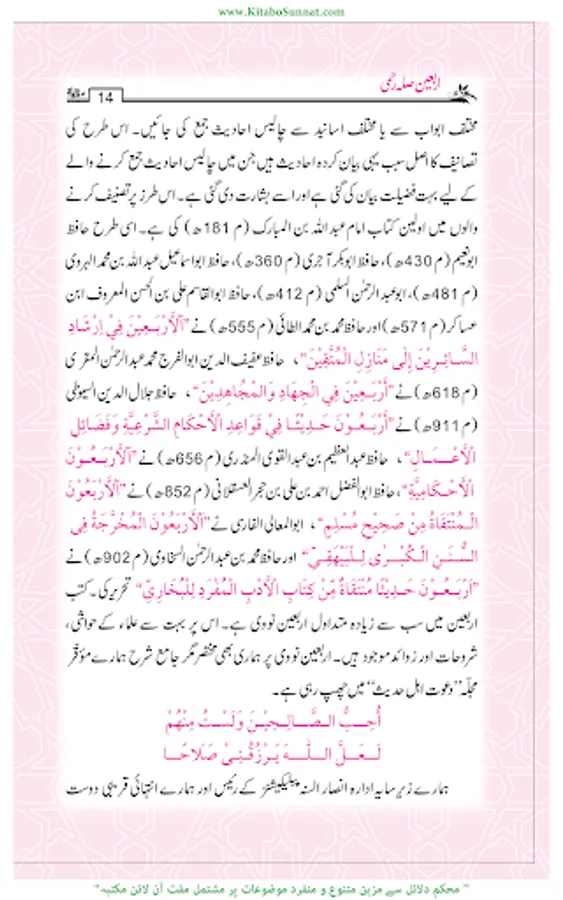 www.KitaboSunnat.com
اربعین صلہ رحمی
14
مختلف ابواب سے یا مختلف اسانید سے چالیس احادیث جمع کی جائیں۔ اس طرح کی
تصانیف کا اصل سبب یہی بیان کردہ احادیث ہیں جن میں چالیس احادیث جمع کرنے والے
کے لیے بہت فضیلت بیان کی گئی ہے اور اسے بشارت دی گئی ہے۔ اس طرز پر تصنیف کرنے
والوں میں اولین کتاب امام عبد اللہ بن المبارک (م 181ھ) کی ہے۔ اسی طرح حافظ
ابونعیم (م 430ھ)، حافظ ابوبکر آجری (م 360ھ)، حافظ ابو اسماعیل عبد اللہ بن محمد الہروی
(م 481ھ)، ابو عبد الرحمٰن السلمی (م 412ھ)، حافظ ابو القاسم علی بن الحسن المعروف ابن
عساکر (م 571ھ) اور حافظ محمد بن محمد الطائی (م 555ھ) نے ”اَلْأَرْبَعِيْنَ فِيْ إِرْشَادِ
السَّائِرِيْنَ إِلَى مَنَازِلِ الْمُتَّقِيْنَ“، حافظ عفیف الدین ابو الفرج محمد عبد الرحمٰن المقری
(م 618ھ) نے ”أَرْبَعِيْنَ فِي الْجِهَادِ وَالْمُجَاهِدِيْنَ“، حافظ جلال الدین السیوطی
(م 911ھ) نے ”أَرْبَعُوْنَ حَدِيْثًا فِيْ قَوَاعِدِ الْأَحْكَامِ الشَّرْعِيَّةِ وَفَضَائِلِ
الْأَعْمَالِ“، حافظ عبد العظیم بن عبد القوی المنذری (م 656ھ) نے ”اَلْأَرْبَعُوْنَ
الْأَحْكَامِيَّةِ“، حافظ ابو الفضل احمد بن علی بن حجر العسقلانی (م 852ھ) نے ”اَلْأَرْبَعُوْنَ
الْمُنْتَقَاةُ مِنْ صَحِيْحِ مُسْلِمٍ“، ابو المعالی الفارسی نے ”اَلْأَرْبَعُوْنَ الْمُخْرَّجَةُ فِي
السُّنَنِ الْكُبْرٰى لِلْبَيْهَقِيِّ“ اور حافظ محمد بن عبد الرحمٰن السخاوی (م 902ھ) نے
”أَرْبَعُوْنَ حَدِيْثًا مُنْتَقَاةٌ مِّنْ كِتَابِ الْأَدَبِ الْمُفْرَدِ لِلْبُخَارِيِّ“ تحریر کی۔ کتب
اربعین میں سب سے زیادہ متداول اربعین نووی ہے۔ اس پر بہت سے علماء کے حواشی،
شروحات اور زوائد موجود ہیں۔ اربعین نووی پر ہماری بھی مختصر مگر جامع شرح ہمارے مؤقر
مجلّہ ”دعوت اہل حدیث“ میں چھپ رہی ہے۔
أُحِبُّ الصَّالِحِيْنَ وَلَسْتُ مِنْهُمْ
لَعَلَّ اللّٰهَ يَرْزُقُنِيْ صَلَاحًا
ہمارے زیر سایہ ادارہ انصار السنہ پبلیکیشنز کے رئیس اور ہمارے انتہائی قریبی دوست
"محکم دلائل سے مزین متنوع و منفرد موضوعات پر مشتمل مفت آن لائن مکتبہ"